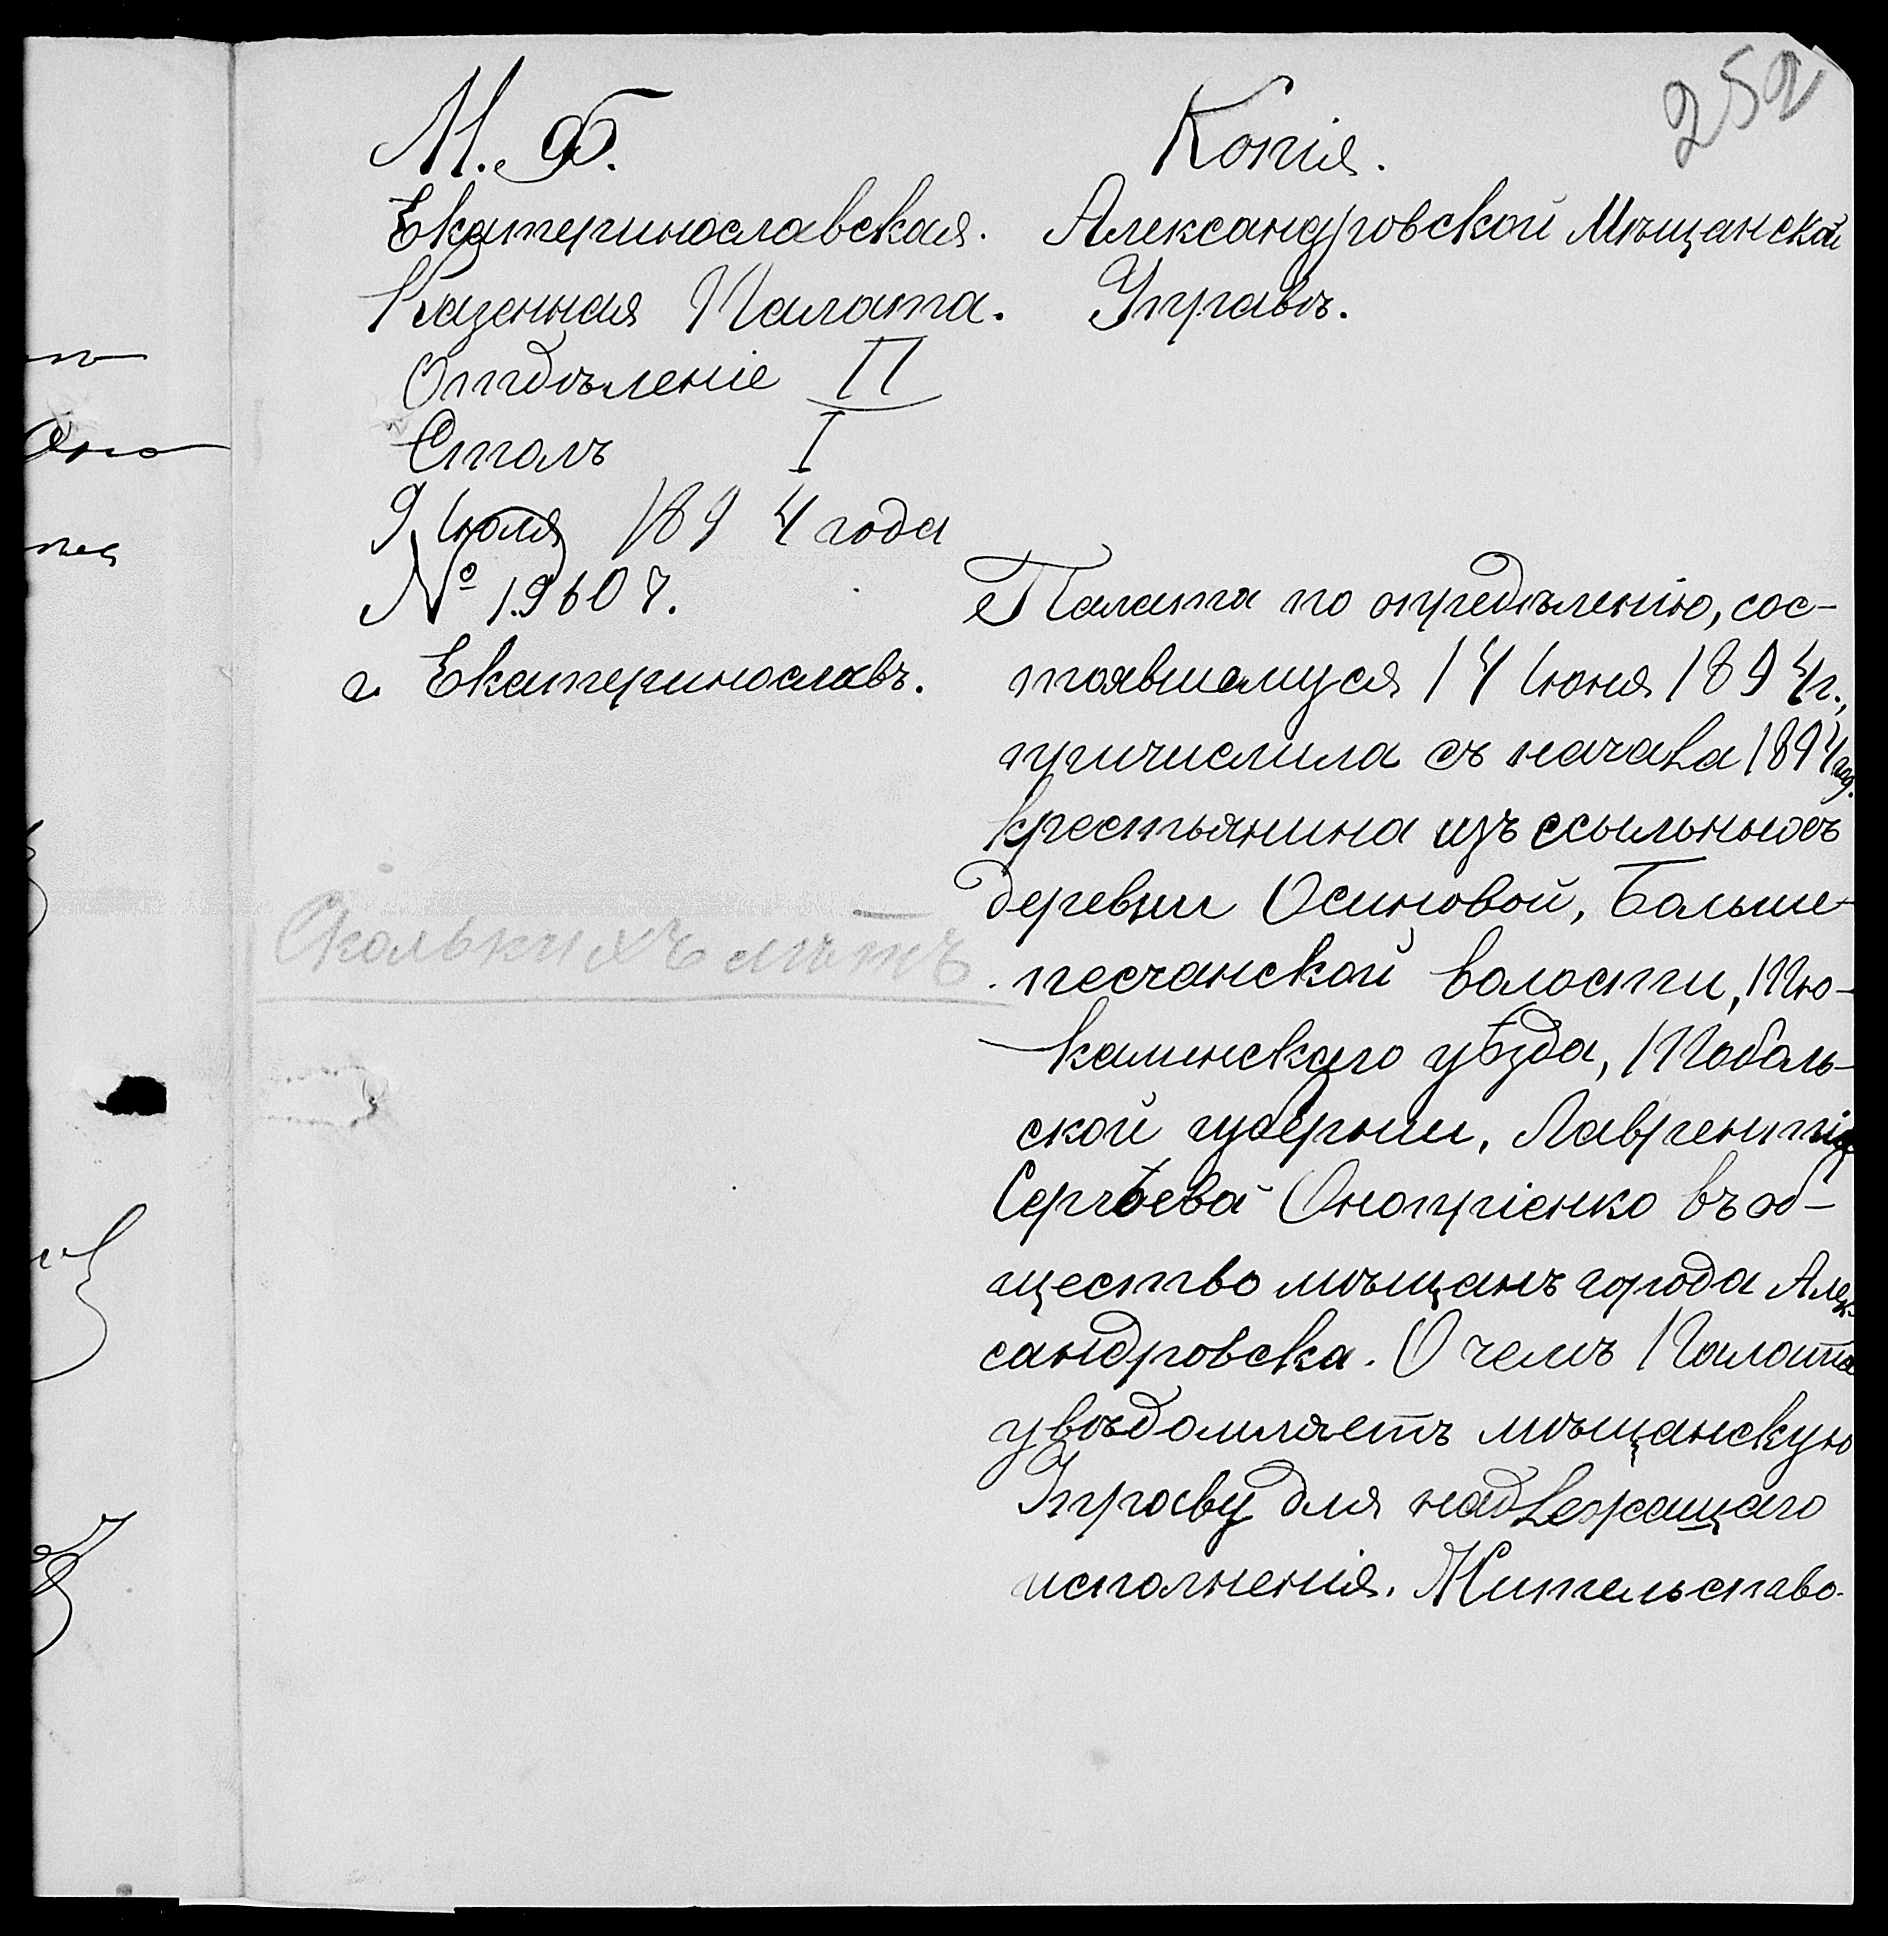 252
М. Ф.
Екатеринославская
Казенная Палата.
Отдѣленіе II
Столъ I
9 Іюля 1894 года
№ 19607.
г. Екатеринославъ.
Сколькихъ лѣтъ
Копія.
Александровской Мѣщанской
Управѣ.
Палата по опредѣленію, сос-
тоявшемуся 14 Іюня 1894 г.,
причислила съ начала 1894 год.
крестьянина изъ ссыльныхъ
деревни Осиновой, Больше-
песчанской волости, Тю-
калинскаго уѣзда, Тоболь-
ской губерніи, Лаврентія
Сергѣева Онопріенко въ об-
щество мѣщанъ города Алек-
сандровска. О чемъ Палата
увѣдомляетъ мѣщанскую
Управу для надлежащаго
исполненія. Жительство